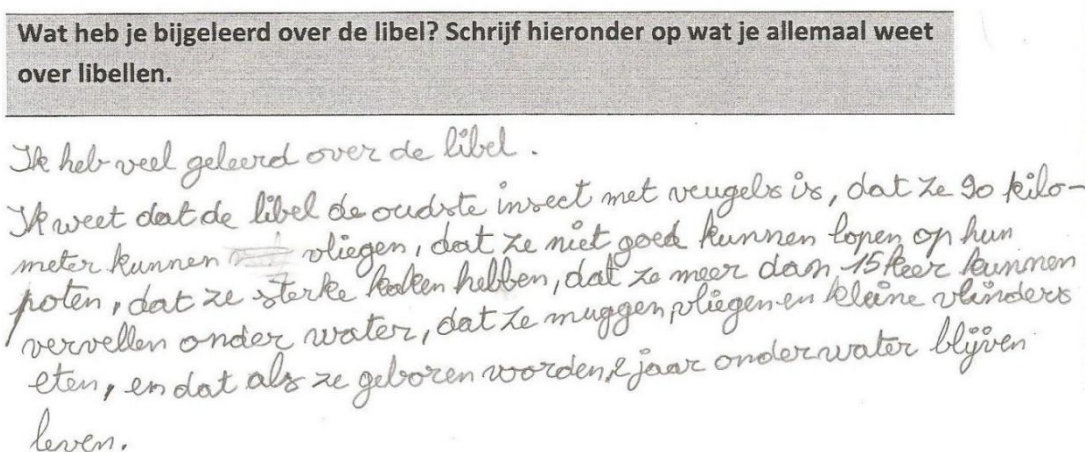 Wat heb je bijgeleerd over de libel? Schrijf hieronder op wat je allemaal weet
over libellen.
Ik heb veel geleerd over de libel.
Ik weet dat de libel de oudste insect met veugels is, dat ze 90 kilo-
meter kunnen vliegen, dat ze niet goed kunnen lopen op hun
poten, dat ze sterke kaken hebben, dat ze meer dan 15 keer kunnen
vervellen onder water, dat ze muggen, vliegen en kleine vlinders
eten, en dat als ze geboren worden, 2 jaar onder water blijven
leven.